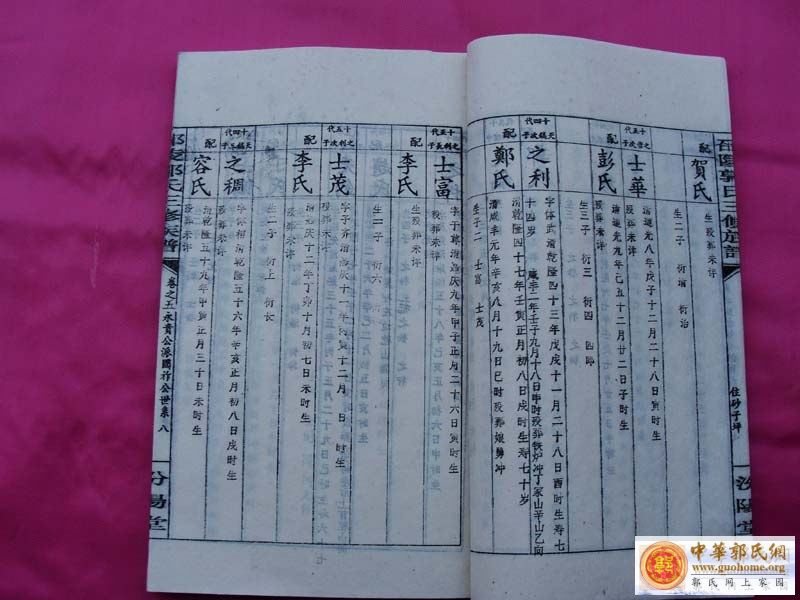 邵陵郭氏三修族譜
住砂子坪
汾陽堂
配
賀氏
生歿葬未詳
生二子 衍 衍治
十五代
士華
清道光八年戊子十二月二十八日寅时生
歿葬未详
配
彭氏
清道光九年己丑十二月廿二日子时生
歿葬未详
生三子 衍三 衍四 四
十四代
之利
字体武清乾隆四十三年戊戌十一月二十八日酉时生寿七
十四岁 咸丰二年壬子九月十八日申时殁葬铁炉冲丁家山辛山乙向
配
鄭氏
清乾隆四十七年壬寅正月初八日戌时生寿七十岁
清咸丰元年辛亥八月十九日巳时殁葬娘舅冲
生子二 士富 士茂
十五代
之利長子
士富
清嘉庆九年甲子正月二十六日寅时生
歿葬未详
配
李氏
生歿葬未详
生一子 衍六
十五代
之利次子
士茂
清嘉庆十一年丙寅十二月 日 时生
歿葬未详
配
李氏
清嘉庆十二年丁卯十月初七日未时生
歿葬未详
生二子 衍上 衍长
十四代
之稠
清乾隆五十六年辛亥正月初八日戌时生
歿葬未详
配
容氏
清乾隆五十九年甲寅正月三十日未时生
歿葬未详
邵陵郭氏三修族譜
卷之五永貴公派國祚公世系八
汾陽堂
中華郭氏網
www.guohome.org
郭氏网上家园